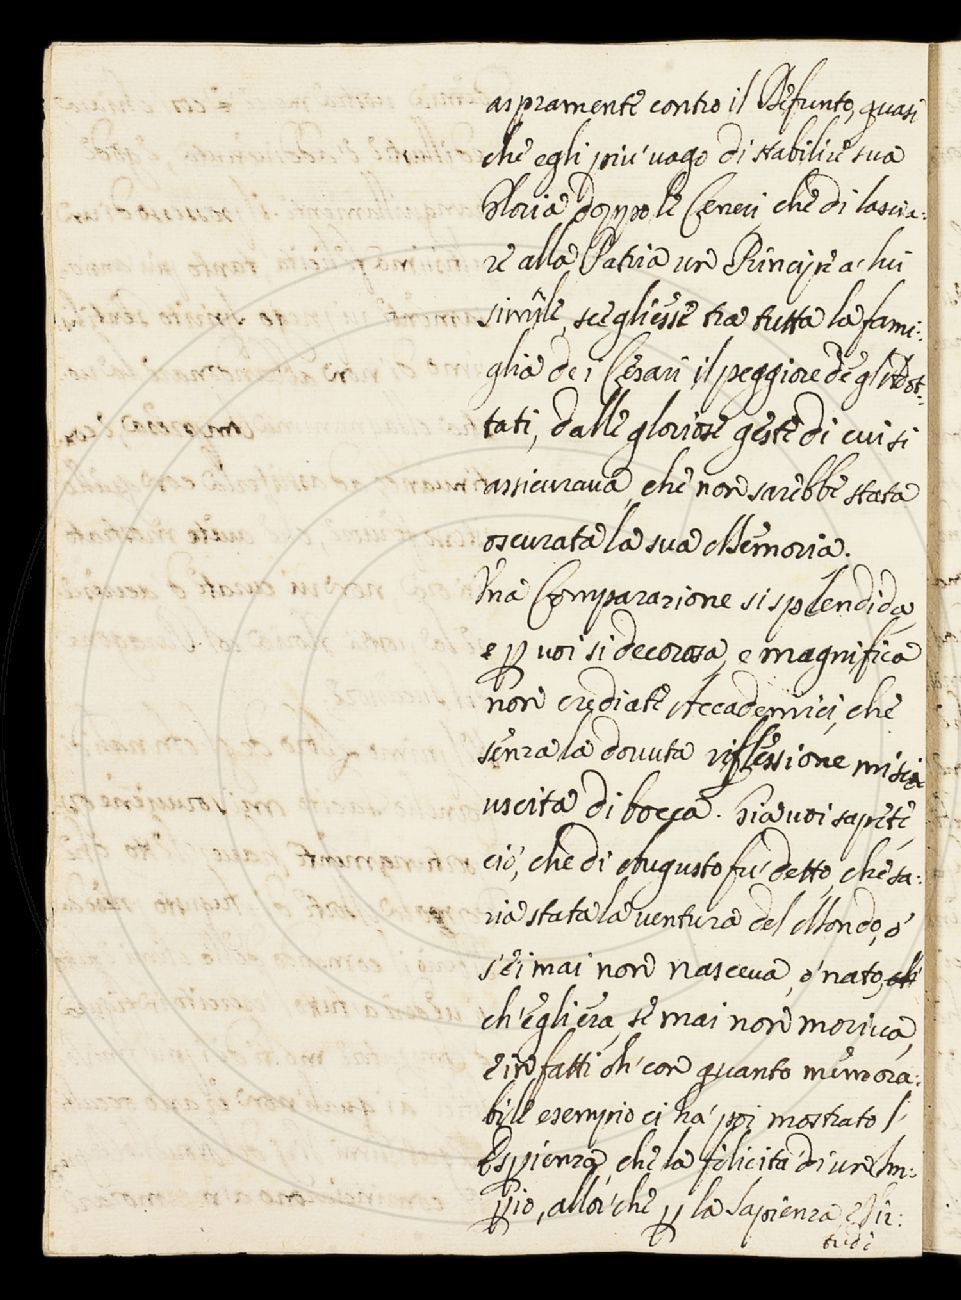 aspramente contro il Defunto, quasi
che egli più vago di stabilire sua
Gloria doppo le Ceneri che di lascia:
re alla Patria un Principe a' lui
simile, scegliesse tra tutta la fami:
glia dei Cesari il peggiore de gli Adot:
tati, dalle gloriose geste di cui si
assicurava, che non sarebbe stata
oscurata la sua Memoria.
Una Comparazione si splendida,
e p voi si decorosa, e magnifica
non crediate Accademici, che
senza la dovuta riflessione mi sia
uscita di bocca. Già voi sapete,
ciò, che di Augusto fu' detto, che sa:
ria stata la ventura del Mondo, ò
s'ei mai non nasceva, ò nato,
ch'egli era, se mai non moriva,
e in fatti oh' con quanto memora:
bile esempio ci ha' poi mostrato l'
Espienza, che la felicita di un Im:
pio, allor che p la Sapienza, e Vir:
tudi